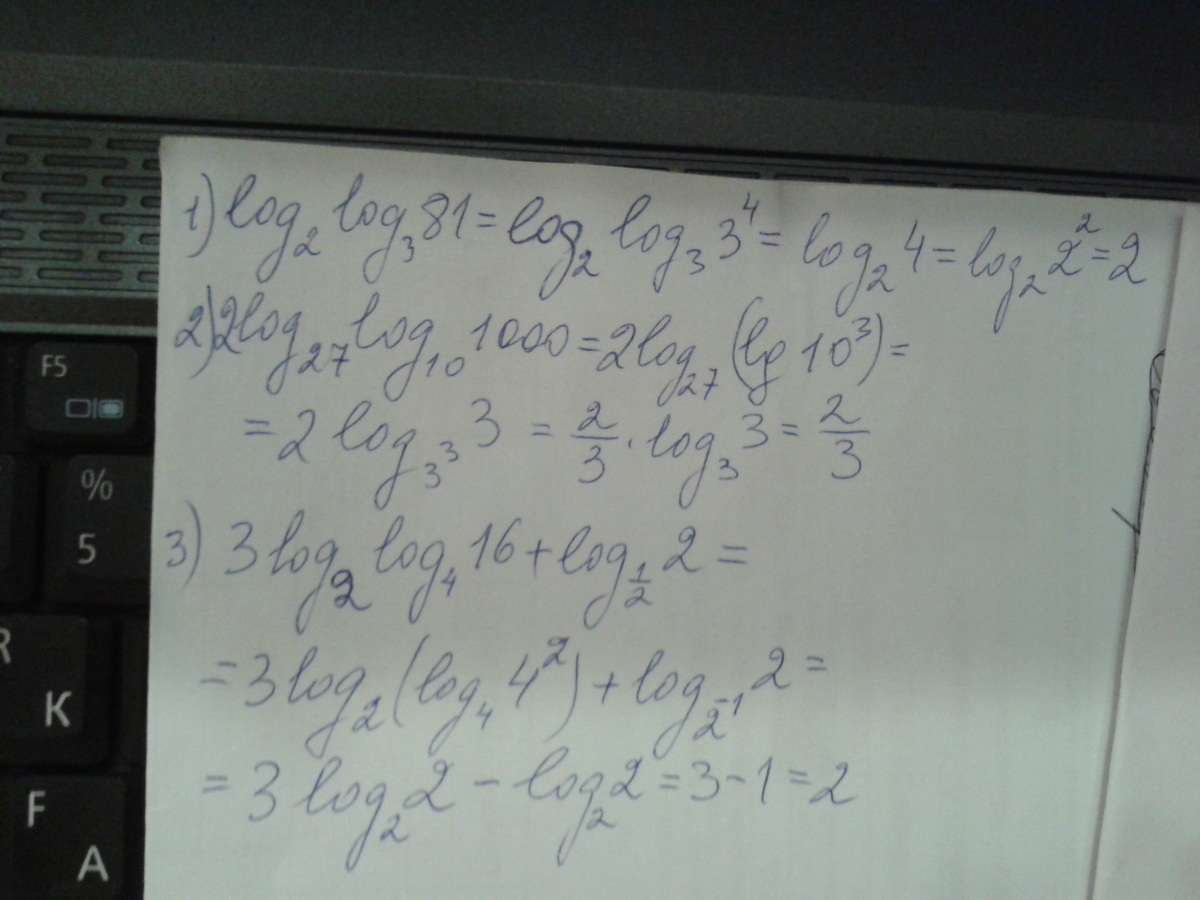 1) log₂ log₃ 81 = log₂ log₃ 3⁴ = log₂ 4 = log₂ 2² = 2
2) 2 log₂₇ log₁₀ 1000 = 2 log₂₇ (lg 10³) =
= 2 log_{3³} 3 = 2/3 · log₃ 3 = 2/3
3) 3 log₂ log₄ 16 + log_{1/2} 2 =
= 3 log₂ (log₄ 4²) + log_{2⁻¹} 2 =
= 3 log₂ 2 - log₂ 2 = 3 - 1 = 2
F5
%
5
R
K
F
A